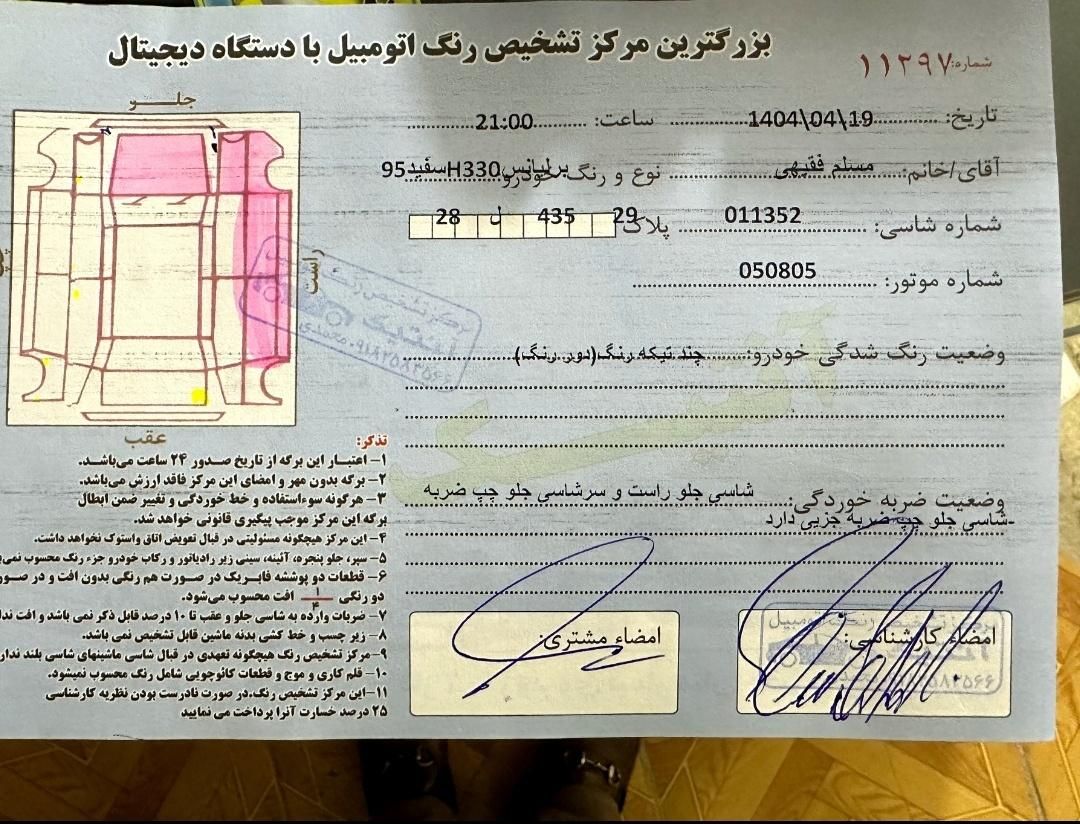 بزرگترین مرکز تشخیص رنگ اتومبیل با دستگاه دیجیتال
شماره: ۱۱۲۹۷
تاریخ: 1404\04\19 ساعت: 21:00
آقای/خانم: مسلم فقیهی نوع و رنگ خودرو: برلیانس H330 سفید 95
شماره شاسی: 011352 پلاک 29 435 ل 28
شماره موتور: 050805
وضعیت رنگ شدگی خودرو: چند تیکه رنگ (دور رنگ)
وضعیت ضربه خوردگی: شاسی جلو راست و سرشاسی جلو چپ ضربه
-شاسی جلو چپ ضربه جزیی دارد
امضاء کارشناسی:
امضاء مشتری:
جلو
راست
عقب
تذکر:
۱- اعتبار این برگه از تاریخ صدور ۲۴ ساعت می‌باشد.
۲- برگه بدون مهر و امضای این مرکز فاقد ارزش می‌باشد.
۳- هرگونه سوءاستفاده و خط خوردگی و تغییر ضمن ابطال
برگه این مرکز موجب پیگیری قانونی خواهد شد.
۴- این مرکز هیچگونه مسئولیتی در قبال تعویض اتاق واستوک نخواهد داشت.
۵- سپر، جلو پنجره، آئینه، سینی زیر رادیاتور و رکاب خودرو جزء رنگ محسوب
۶- قطعات دو پوششه فابریک در صورت هم رنگی بدون افت و در
دو رنگی ۱/۴ افت محسوب می‌شود.
۷- ضربات وارده به شاسی جلو و عقب تا ۱۰ درصد قابل ذکر نمی باشد و افت
۸- زیر چسب و خط کشی بدنه ماشین قابل تشخیص نمی باشد.
۹- مرکز تشخیص رنگ هیچگونه تعهدی در قبال شاسی ماشینهای شاسی بلند
۱۰- قلم کاری و موج و قطعات کائوچویی شامل رنگ محسوب نمیشود.
۱۱- این مرکز تشخیص رنگ، در صورت نادرست بودن نظریه کارشناسی
۲۵ درصد خسارت آنرا پرداخت می نمایید